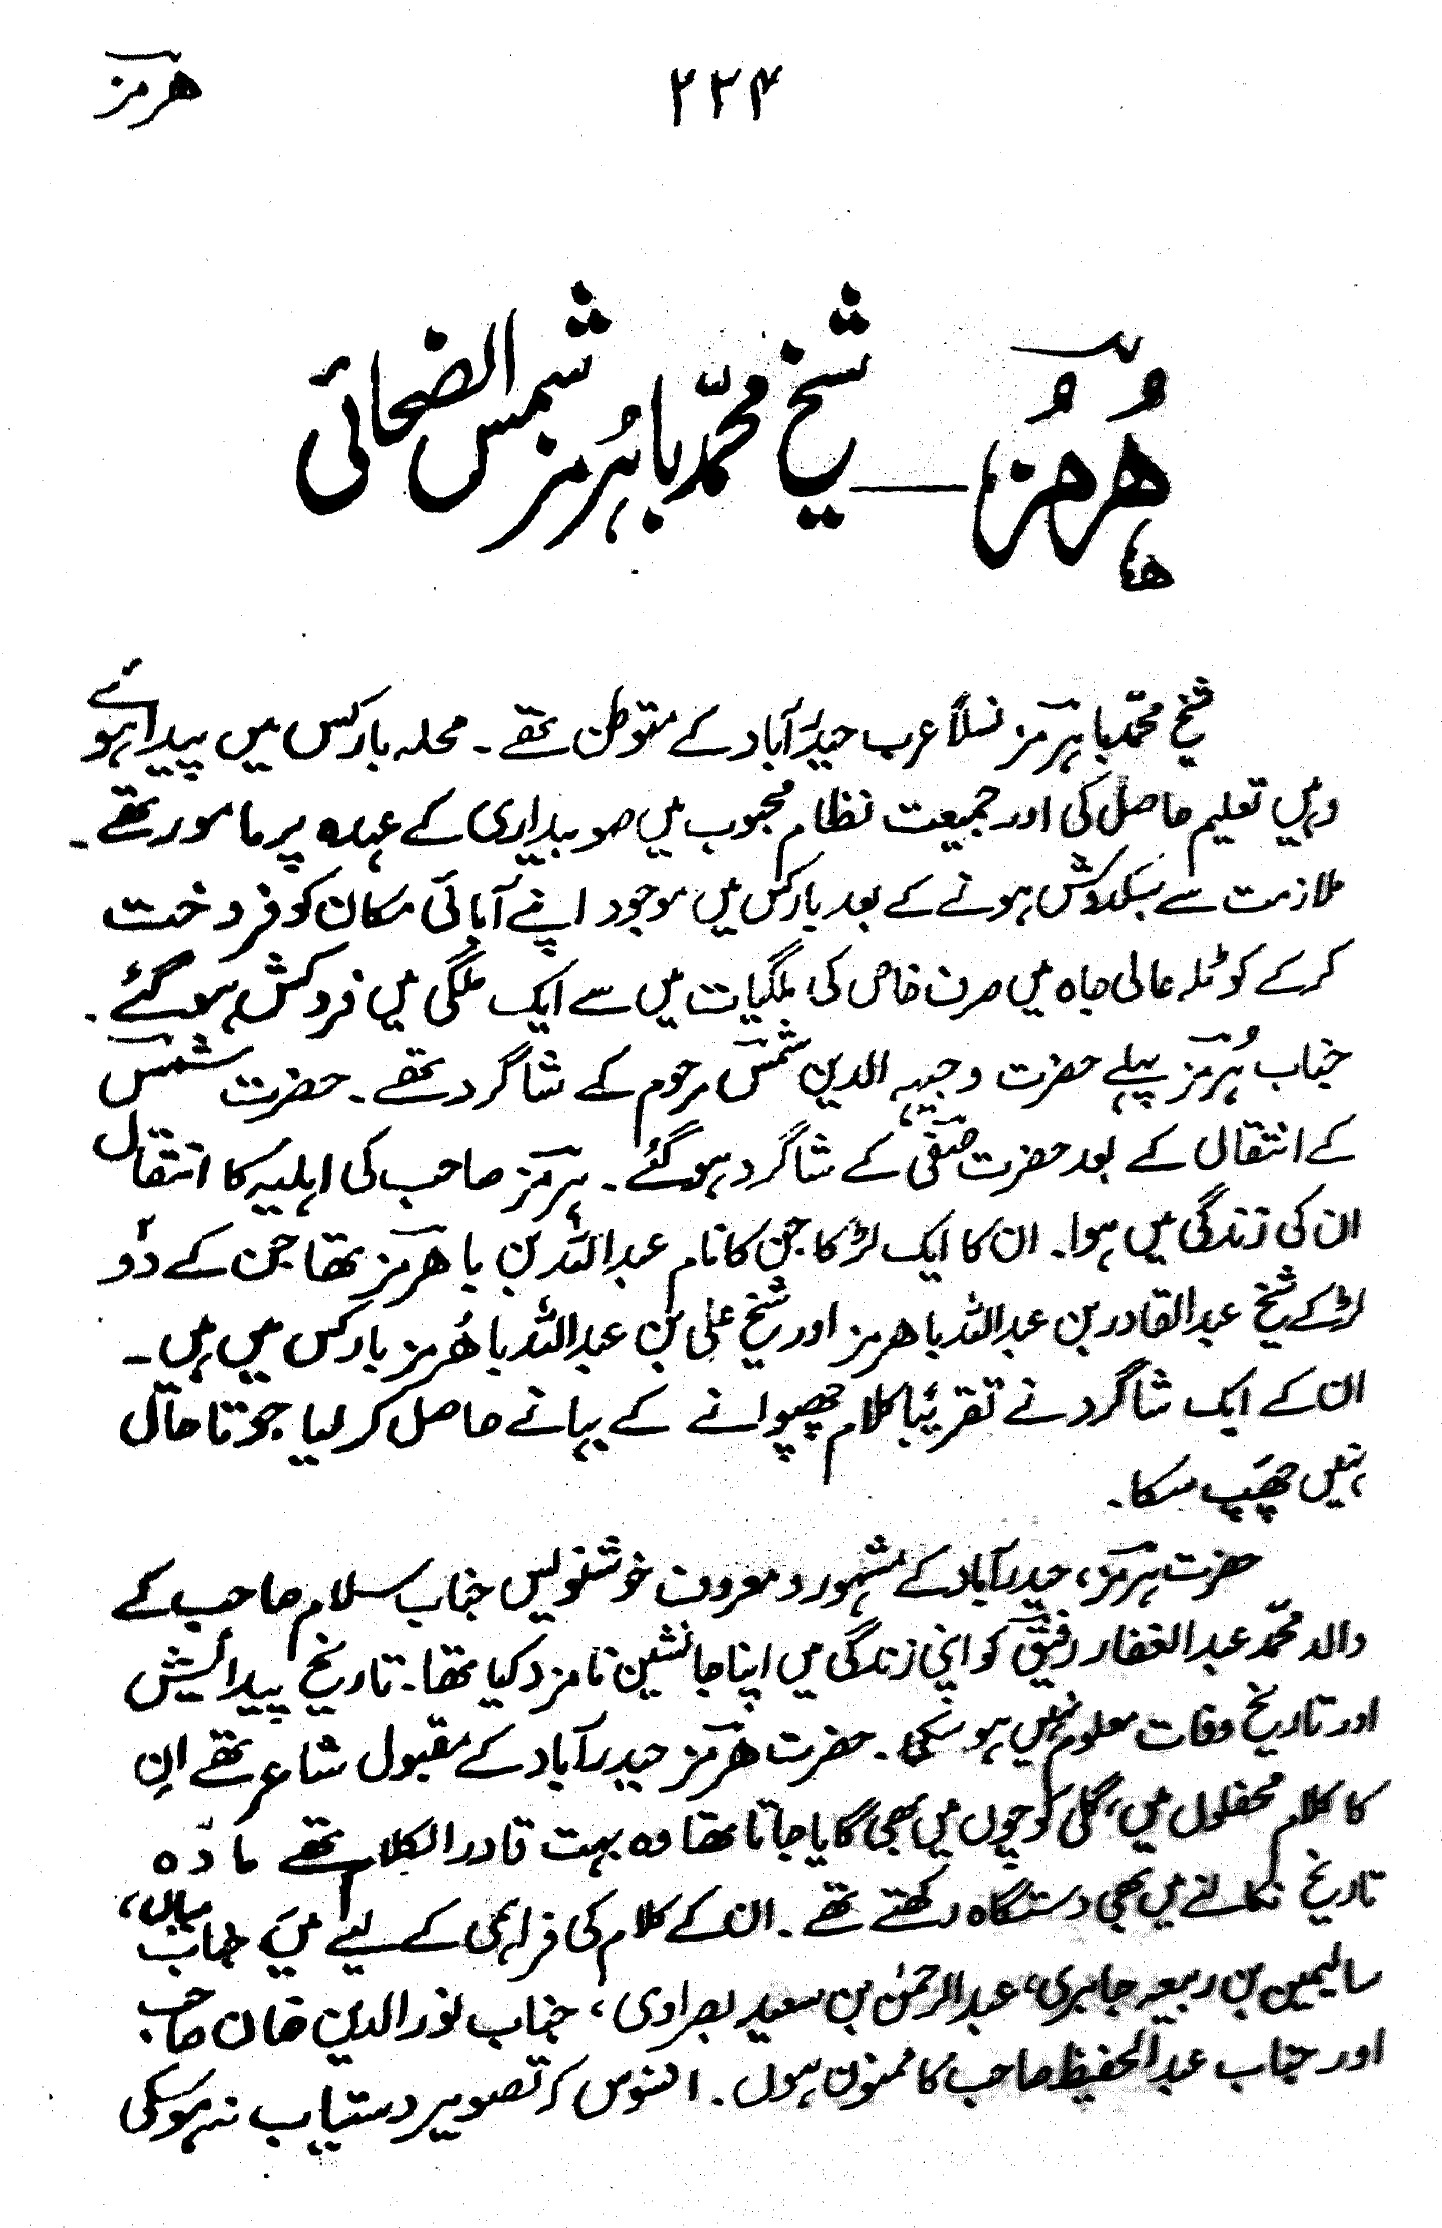 ھرمز
۲۲۴
ہُرمُز — شیخ محمّد باہُرمز شمس الضحائی
شیخ محمّد باہرمز نسلاً عرب حیدرآباد کے متوطن تھے۔ محلہ بارکس میں پیدا ہوئے
وہیں تعلیم حاصل کی اور جمیعت نظام محبوب میں صوبیداری کے عہدہ پر مامور تھے۔
ملازمت سے سبکدوش ہونے کے بعد بارکس میں موجود اپنے آبائی مکان کو فروخت
کرکے کوٹلہ عالی جاہ میں صرف خاص کی ملگیات میں سے ایک ملگی میں فروکش ہوگئے۔
جناب ہُرمز پہلے حضرت وجیہہ الدین شمس مرحوم کے شاگرد تھے۔ حضرت شمس
کے انتقال کے بعد حضرت صفی کے شاگرد ہوگئے۔ ہرمز صاحب کی اہلیہ کا انتقال
ان کی زندگی میں ہوا۔ ان کا ایک لڑکا جن کا نام عبداللہ بن باھرمز تھا جن کے دو
لڑکے شیخ عبدالقادر بن عبداللہ باھرمز اور شیخ علی بن عبداللہ باھُرمز بارکس میں ہیں۔
ان کے ایک شاگرد نے تقریباً کلام چھپوانے کے بہانے حاصل کرلیا جو تاحال
نہیں چھپ سکا۔
حضرت ہرمز، حیدرآباد کے مشہور و معروف خوشنویس جناب سلام صاحب کے
والد محمّد عبدالغفار رفیق کو اپنی زندگی میں اپنا جانشین نامزد کیا تھا۔ تاریخ پیدائش
اور تاریخ وفات معلوم نہیں ہوسکی۔ حضرت ھرمز حیدرآباد کے مقبول شاعر تھے ان
کا کلام محفلوں میں، گلی کوچوں میں بھی گایا جاتا تھا وہ بہت قادر الکلام تھے مادّہ
تاریخ نکالنے میں بھی دستگاہ رکھتے تھے۔ ان کے کلام کی فراہمی کے لیے میں جناب
سالیمین بن ربیعہ جابری، عبدالرحمٰن بن سعید بصراوی، جناب نورالدین خان صاحب
اور جناب عبدالحفیظ صاحب کا ممنون ہوں۔ افسوس کہ تصویر دستیاب نہ ہوسکی